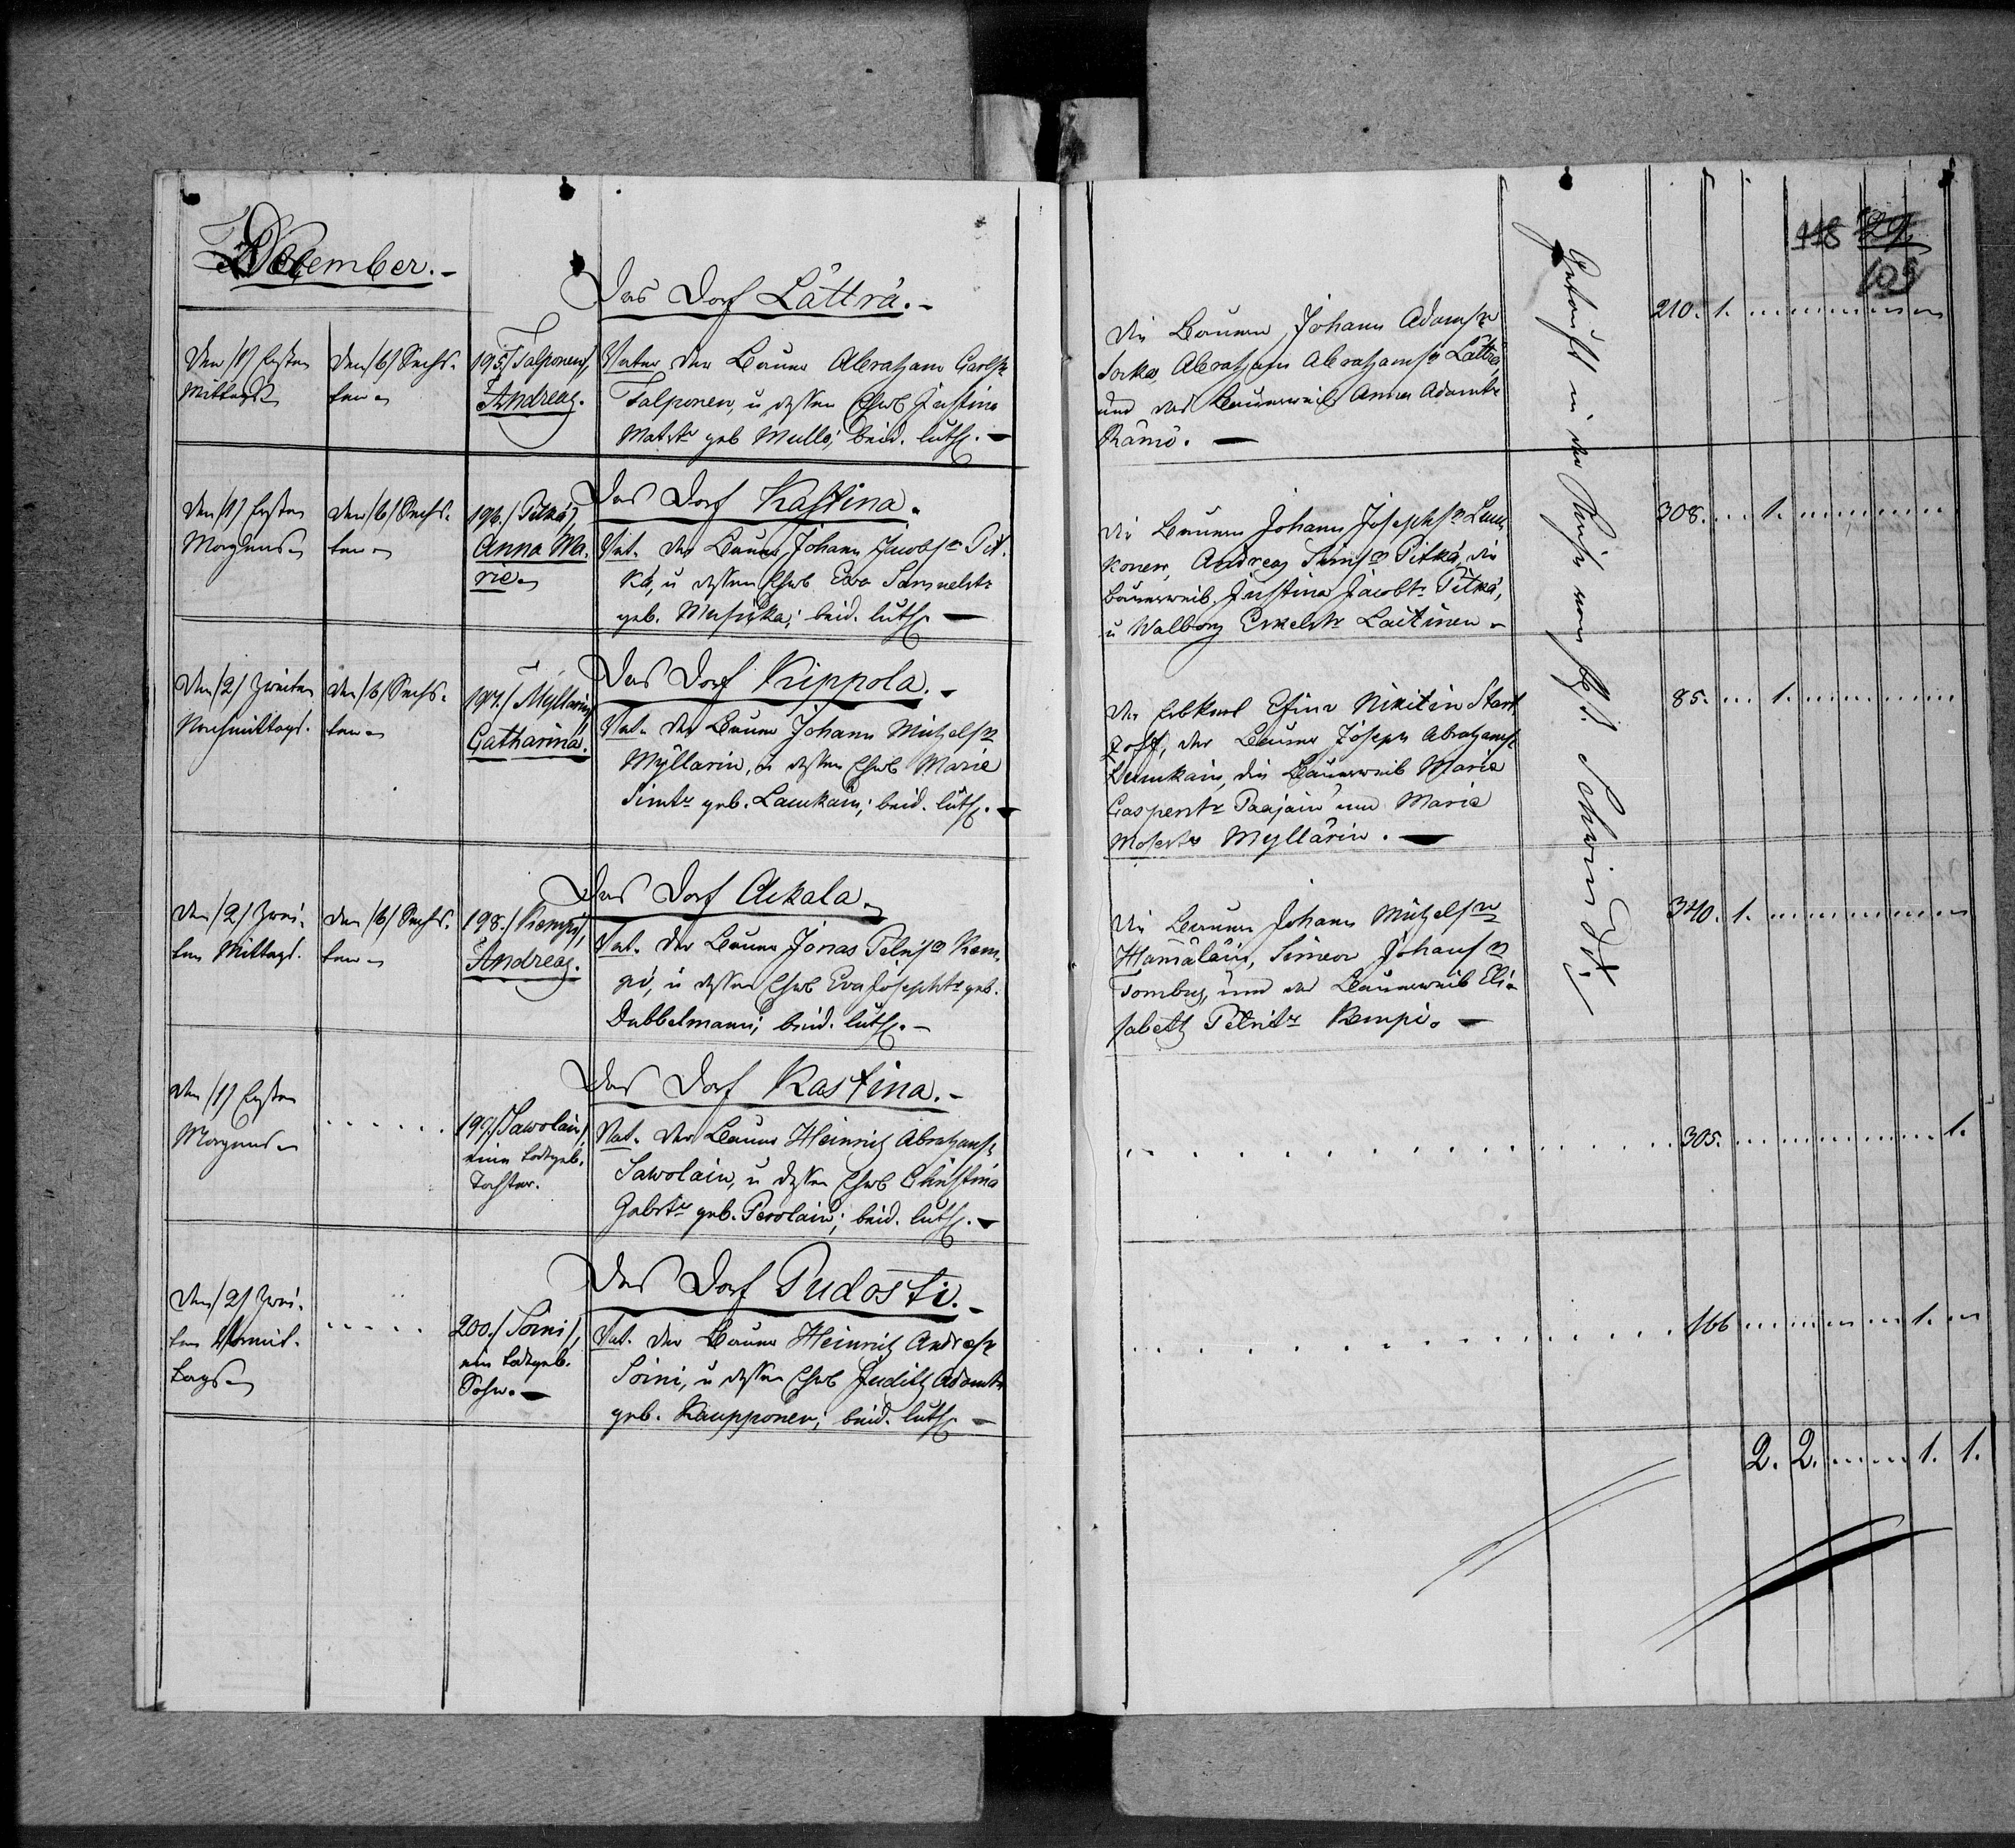 December.-
Das Dorf Lätträ.-
Den /1/ Ersten
Mittags
Den /6/ Sechs-
ten
195./Talponen/,
Andreas.
Vater der Bauer Abraham Carlsn
Talponen, u dessen Ehwb Justina
Matstr geb Mullo; beid. luth.-
Das Dorf Kastina.
Den /1/ Ersten
Morgens
Den /6/ Sechs-
ten
196./Pitkä/,
Anna Ma-
rie
Vat. der Bauer Johann Jacobsn Pit-
kä, u dessen Ehwb Eva Samuelstr
geb. Musikka; beid. luth.-
Das Dorf Kippola.-
Den /2/ Zweiten
Nachmittags.
Den /6/ Sechs-
ten
197./Myllärin/
Catharina.
Vat. der Bauer Johann Michelsn
Myllärin, u dessen Ehwb Marie
Simtr geb. Laukain; beid. luth.-
Das Dorf Aekala
Den /2/ Zwei-
ten Mittags.
Den /6/ Sechs-
ten
198./Kempi/,
Andreas.
Vat. der Bauer Jonas Petrisn Kem-
pi, u dessen Ehwb Eva Josephtr geb.
Dubbelmann; beid. luth.-
Das Dorf Kastina.-
Den /1/ Ersten
Morgens
199./Sawolain/,
eine todtgeb.
Tochter.
Vat. der Bauer Heinrich Abrahams
Sawolain, u dessen Ehwb Christina
Gabrtr geb. Perolain; beid. luth.-
Das Dorf Pudosti.-
Den /2/ Zwei-
ten Vormit-
tags
200./Soini/,
ein todtgeb.
Sohn.-
Vat. der Bauer Heinrich Andrsn
Soini, u dessen Ehwb Judith Adamtr
geb. Kaupponen; beid. luth.-
118 129
105
Die Bauern Johann Adamsn
Sorka, Abraham Abrahamsn Lätträ,
und das Bauerweib Anna Adamtr
Rämö.-
210. 1.
Die Bauern Johann Josephsn Leu-
konen, Andreas Simsn Pitkä, die
Bauerweib. Justina Jacobtr Pitkä,
u Walborg Erkelstr Laitinen-
308. 1.
Der Erbkerl Efim Nikitin Start-
zoff, der Bauer Joseph Abrahams
Laukain, die Bauerweib Maria
Casperstr Paajain und Maria
Mosestr Myllärin.-
85. 1.
Die Bauern Johann Michelsn
Hämäläin, Simeon Johansn
Tombus, und das Bauerweib Eli-
sabeth Petritr Kempi.-
340. 1.
305. 1.
166 1.
2. 2. 1. 1.
Getauft in der Kirche vom P. J. Schwindt./